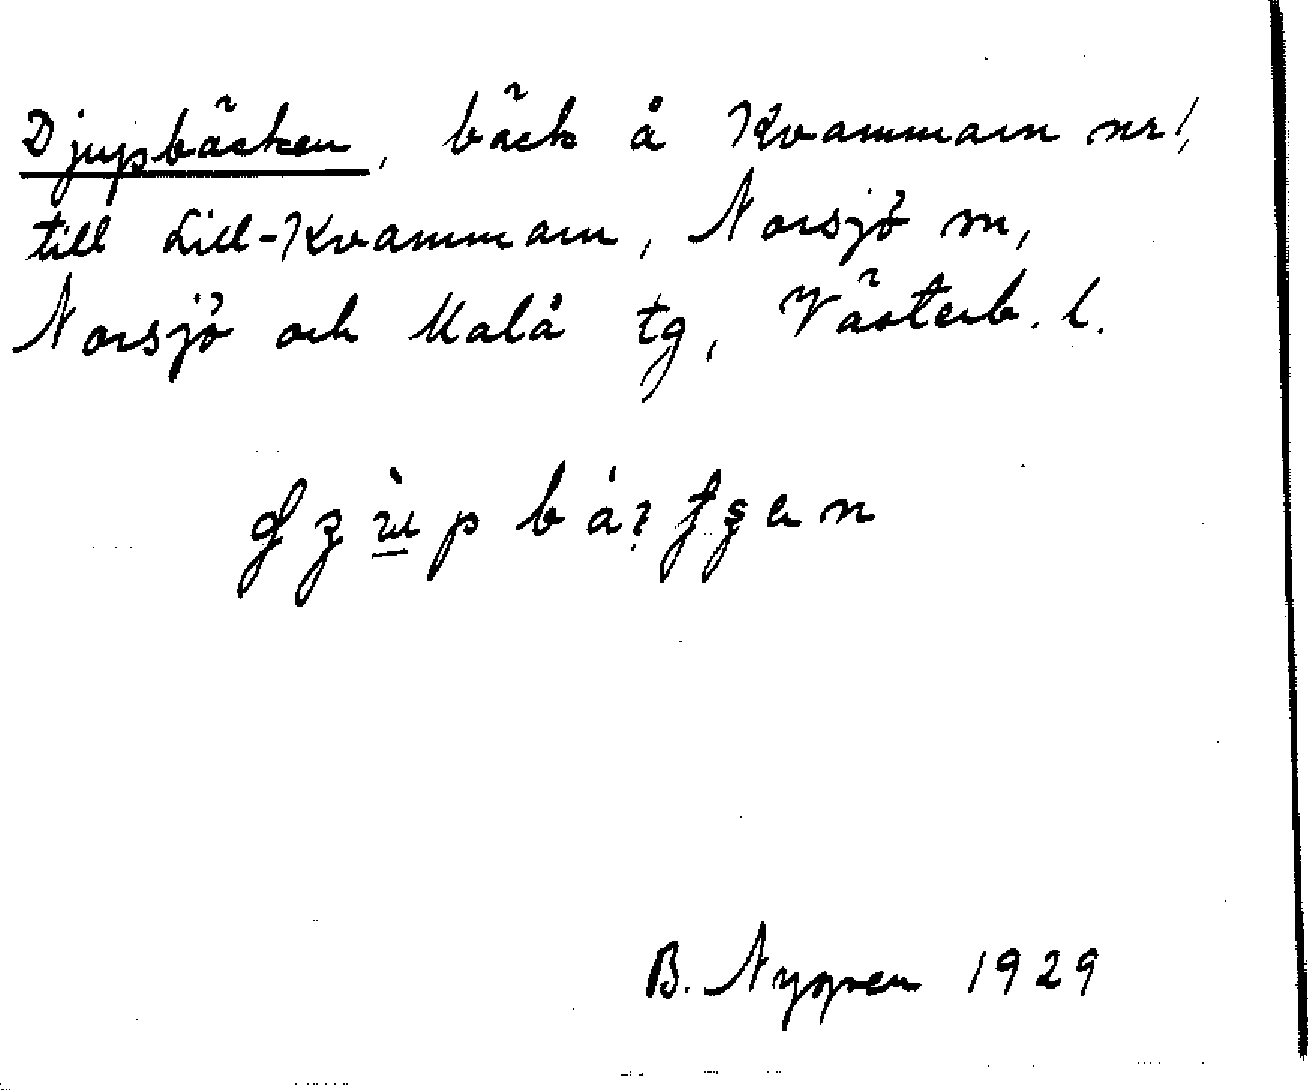 Djupbäcken, bäck å Kvammarn nr 1,
till Lill-Kvammarn, Norsjö sn,
Norsjö och Malå tg, Västerb. l.
B. Nygren 1929